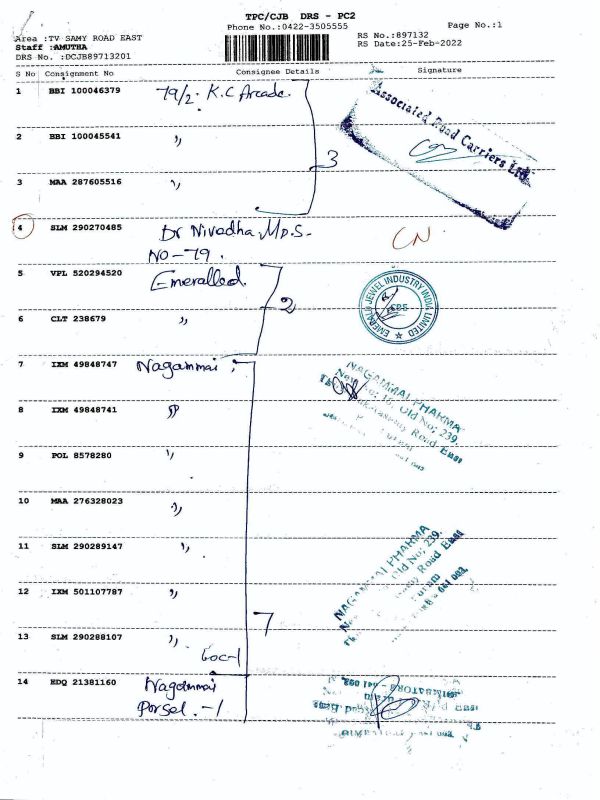 TPC/CJB DRS - PC2
Phone No.:0422-3505555
Page No.:1
Area :TV SAMY ROAD EAST
RS No.:897132
Staff :AMUTHA
RS Date:25-Feb-2022
DRS No. :DCJB89713201
S No Consignment No Consignee Details Signature
1 BBI 100046379 79/2. K.C Arcade.
Associated Road Carriers Ltd.
2 BBI 100045541 〃
3
3 MAA 287605516 〃
4 SLM 290270485 Dr Nivadha. M.D.S-
NO-79.
CN
5 VPL 520294520 Emeralled.
2
EMERALD JEWEL INDUSTRY INDIA LIMITED
6 CLT 238679 〃
7 IXM 49848747 Nagammai
NAGAMMAI PHARMA
New No; 16, Old No; 239,
Road East
8 IXM 49848741 〃
9 POL 8578280 〃
10 MAA 276328023 〃
11 SLM 290289147 〃
NAGAMMAI PHARMA
Old No; 239,
Road East
12 IXM 501107787 〃
7
13 SLM 290288107 〃
Loc-1
14 HDQ 21381160 Nagammai
Parsel.-1